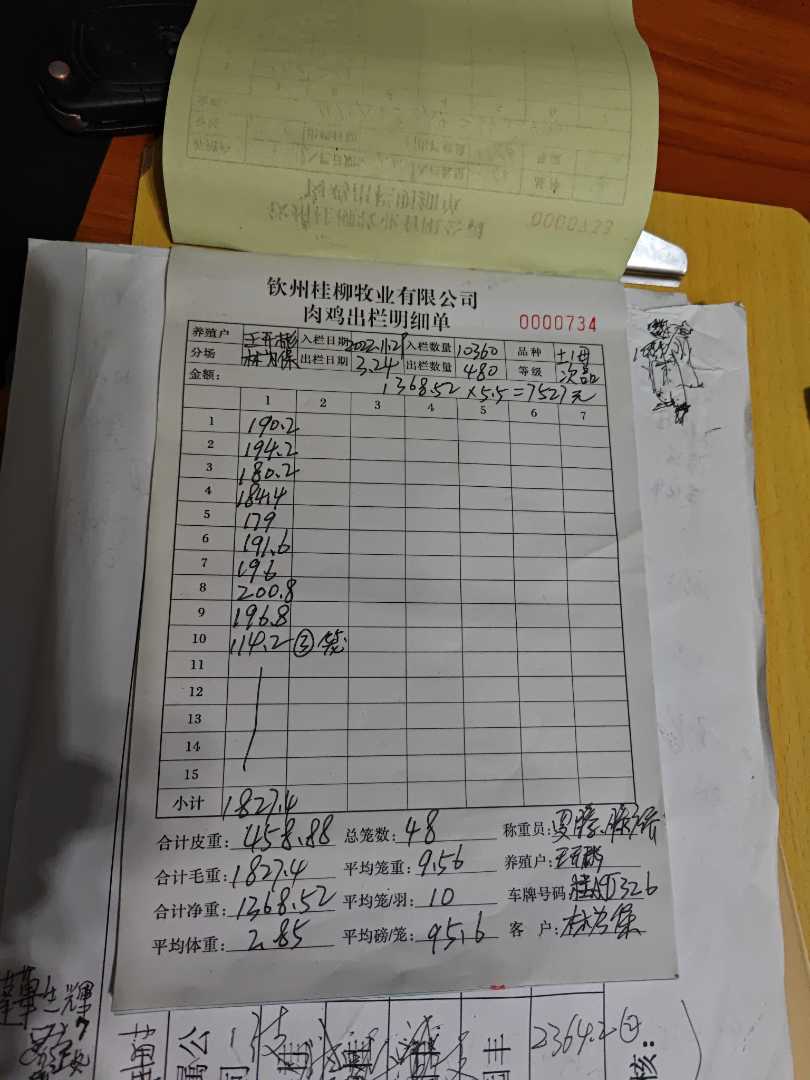 钦州桂柳牧业有限公司
肉鸡出栏明细单 0000734
养殖户 入栏日期 2022.11.21 入栏数量 10360 品种 土1母
分场 出栏日期 3.24 出栏数量 480 等级 次品
金额: 1368.52 x5.5=7527元
1 2 3 4 5 6 7
1 190.2
2 194.2
3 180.2
4 184.4
5 179
6 191.6
7 196
8 200.8
9 196.8
10 114.2 ③笼
11
12
13
14
15
小计 1827.4
合计皮重: 458.88 总笼数: 48 称重员:
合计毛重: 1827.4 平均笼重: 9.56 养殖户:
合计净重: 1368.52 平均笼/羽: 10 车牌号码:
平均体重: 2.85 平均磅/笼: 95.6 客 户:
0000733
2364.2
核: